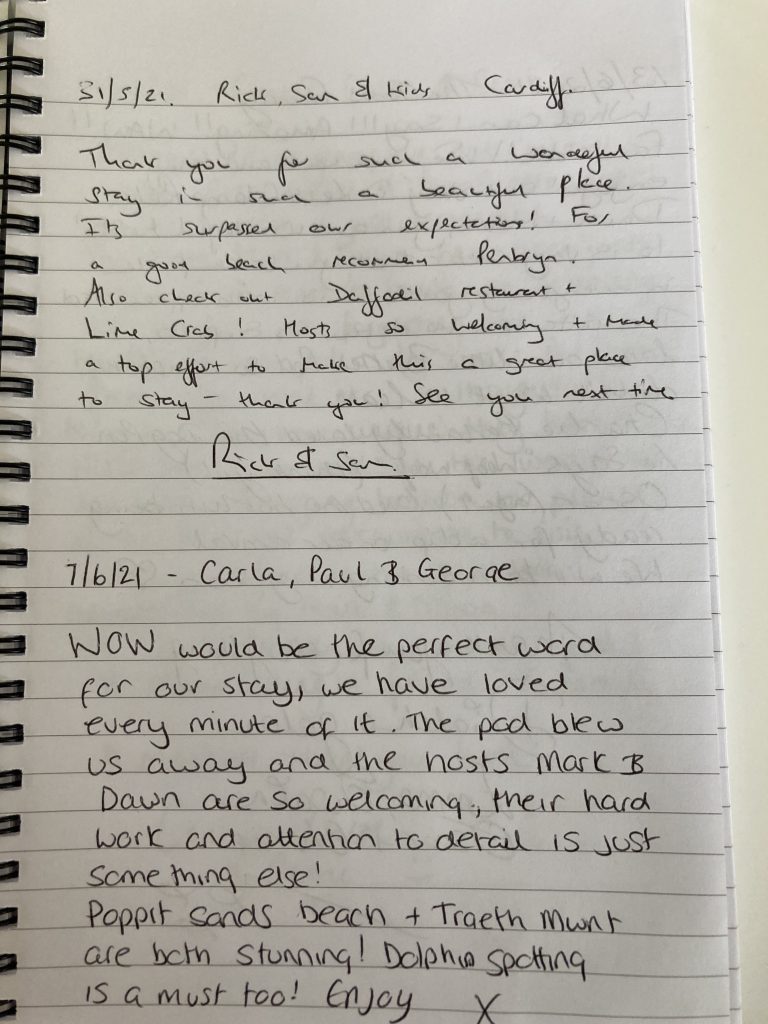 31/5/21. Rick, Sam & kids Cardiff.
Thank you for such a wonderful
stay in such a beautiful place.
Its surpassed our expectations! For
a good beach recommen Penbryn.
Also check out Daffodil restaurant +
Lime Crab! Hosts so welcoming + made
a top effort to make this a great place
to stay - thank you! See you next time
Rick & Sam.
7/6/21 - Carla, Paul & George
WOW would be the perfect word
for our stay, we have loved
every minute of it. The pod blew
us away and the hosts Mark &
Dawn are so welcoming, their hard
work and attention to detail is just
something else!
Poppit Sands beach + Traeth Mwnt
are both stunning! Dolphin spotting
is a must too! Enjoy X